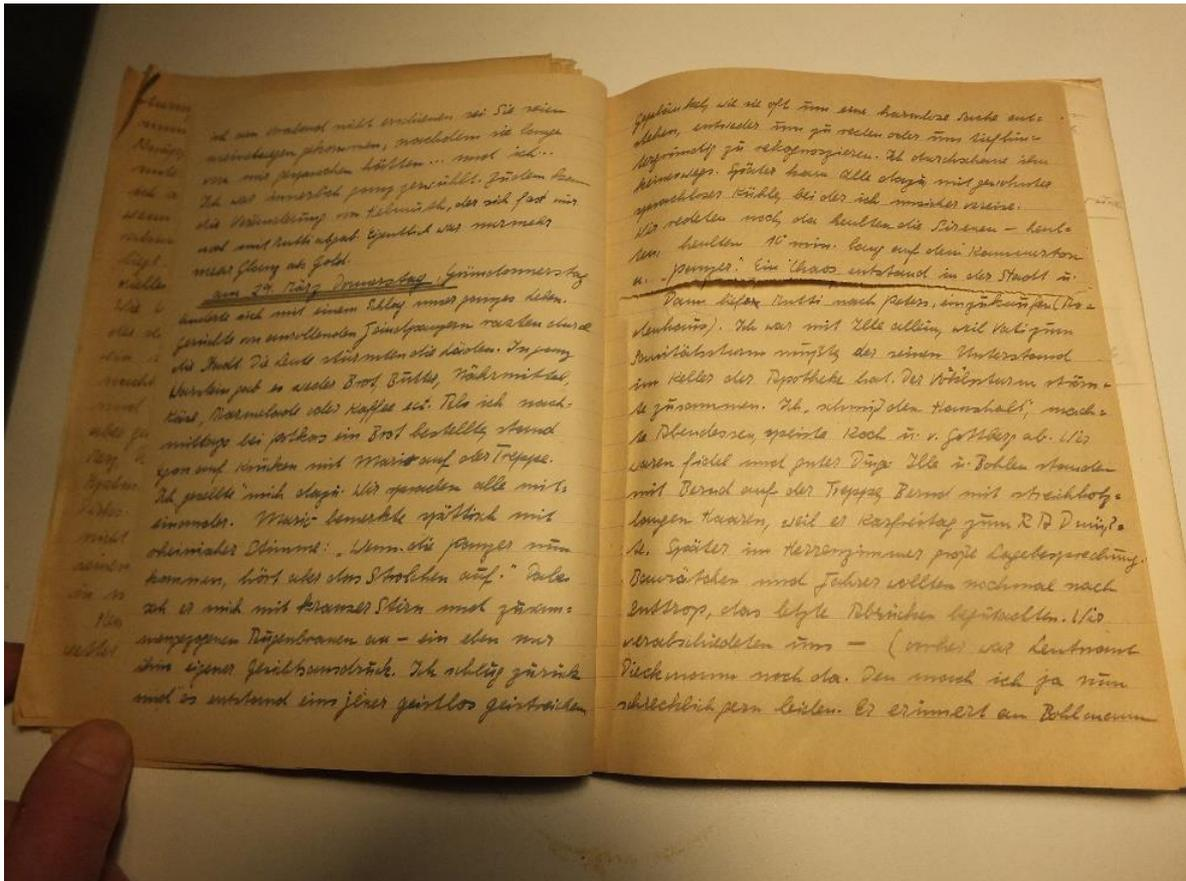 ich am Abend nicht erschienen sei Sie seien
meinetwegen gekommen, nachdem sie lange
von mir gesprochen hätten... und ich...
Ich war innerlich ganz zerwühlt. Zudem kam
die Veränderung von Helmuth, der sich fast nur
noch mit Mutti abgab. Eigentlich war nunmehr
mehr Glanz als Gold.
am 29. März Donnerstag. Gründonnerstag
änderte sich mit einem Schlag unser ganzes Leben.
Gerüchte von anrollenden Feindpanzern rasten durch
die Stadt. Die Leute stürmten die Läden. In ganz
gab es weder Brot, Butter, Nährmittel,
Käse, Marmelade oder Kaffee ect. Als ich nach-
mittags bei Polkas ein Brot bestellte, stand
von auf Krücken mit Mario auf der Treppe.
Ich gesellte mich dazu. Wir sprachen alle mit-
einander. Mario bemerkte spöttisch mit
Stimme: „Wenn die Panzer nun
kommen, hört aber das Strolchen auf." Dabei
sah er mich mit krauser Stirn und zusam-
mengezogenen Augenbrauen an – ein eben nur
ihm eigener Gesichtsausdruck. Ich schlug zurück
und es entstand eins jener geistlos geistreichen
Geplänkel, wie sie oft um eine harmlose Sache ent-
stehen, entweder um zu necken oder um tiefgrün-
zu rekognoszieren. Ich durchschaue ihn
keineswegs. Später kam Ille dazu, mit gewohnter
sprachloser Kühle, bei der ich unsicher vereise.
Wir redeten noch, da heulten die Sirenen – heul-
ten, heulten 10 min. lang auf dem Kammerton
a. „Panzer". Ein Chaos entstand in der Stadt u.
Dann liefen Mutti nach Peters, einzukaufen
Ich war mit Ille allein, weil Vati zum
Sanitätssturm mußte, der seinen Unterstand
im Keller der Apotheke hat. Der Volkssturm
zusammen. Ich „schmiß den Haushalt", mach-
te Abendessen, speiste Koch u. v. Gottberg ab. Wir
waren fidel und guter Dinge. Ille u. Bohlen standen
mit Bernd auf der Treppe, Bernd mit streichholz-
langen Haaren, weil er Karfreitag zum R A D muß-
te. Später im Herrenzimmer große Lagebesprechung.
Baurätchen und Fahrer wollten nochmal nach
das letzte Abrücken begutachten. Wir
verabschiedeten uns — (vorher war Leutnant
Dieckmann noch da. Den mag ich ja nun
schrecklich gern leiden. Er erinnert an Bohlmann